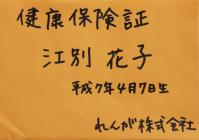 健康保険証
江別 花子
平成7年4月7日生
れんが株式会社